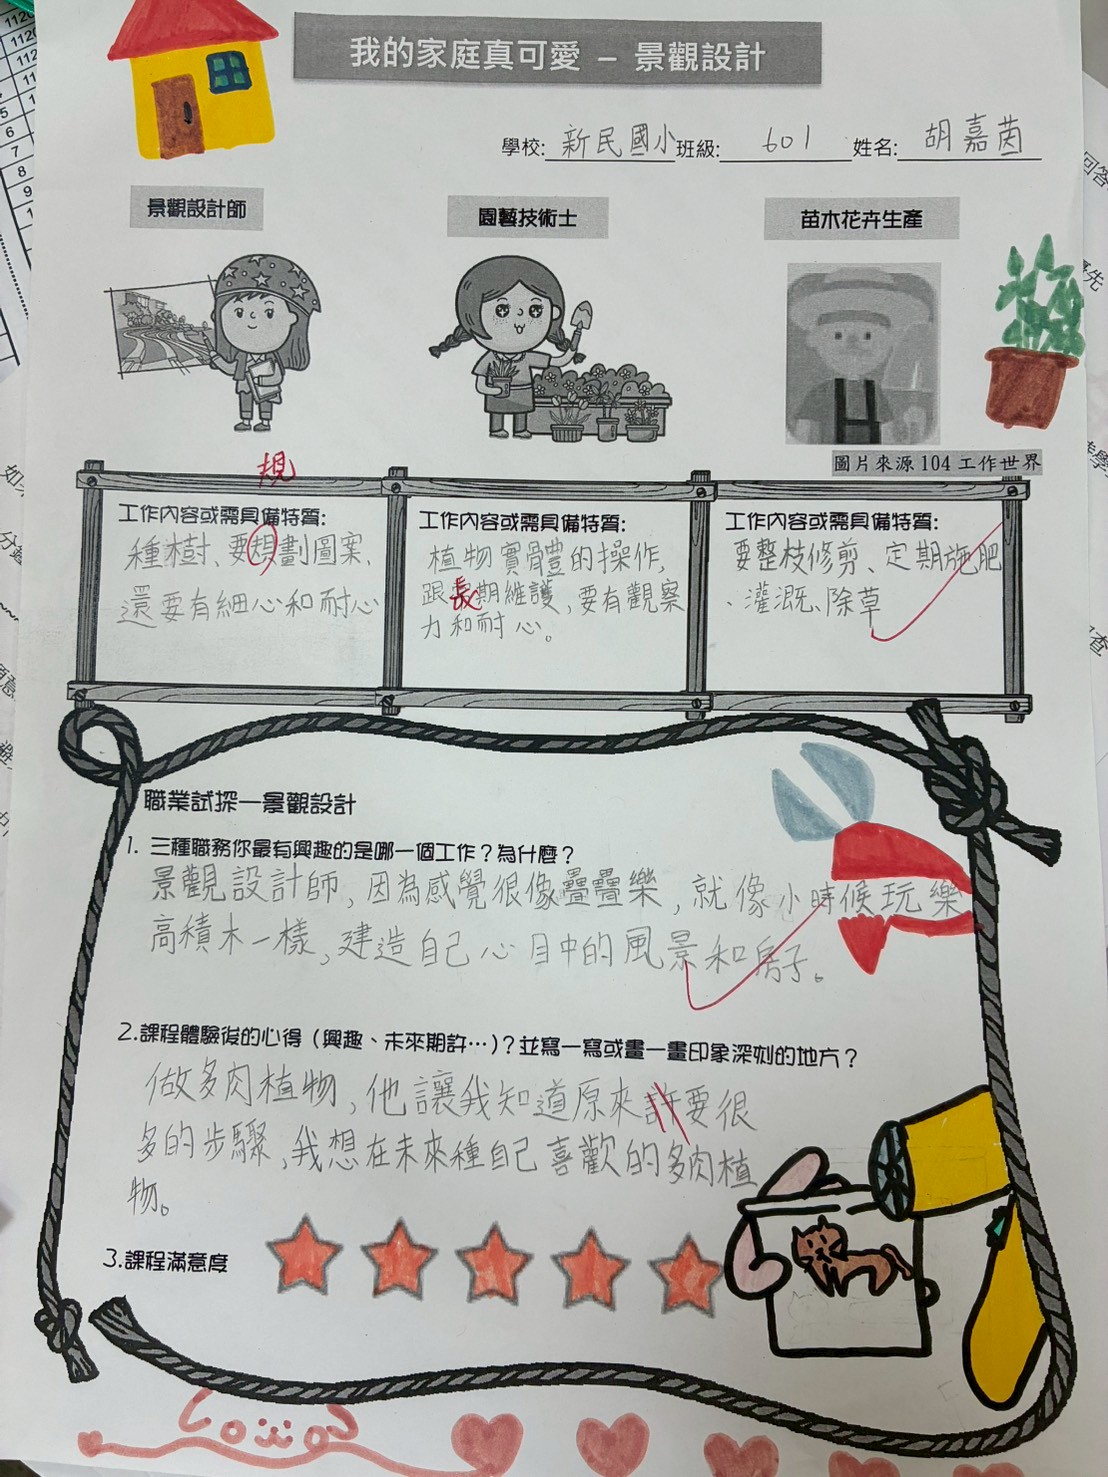 我的家庭真可愛 – 景觀設計
學校: 新民國小 班級: 601 姓名: 胡嘉茵
景觀設計師
園藝技術士
苗木花卉生產
圖片來源 104 工作世界
規
工作內容或需具備特質:
種樹、要規劃圖案、
還要有細心和耐心
工作內容或需具備特質:
植物實體的操作,
跟長期維護,要有觀察
力和耐心。
工作內容或需具備特質:
要整枝修剪、定期施肥
、灌溉、除草
職業試探—景觀設計
1. 三種職務你最有興趣的是哪一個工作?為什麼?
景觀設計師,因為感覺很像疊疊樂,就像小時候玩樂
高積木一樣,建造自己心目中的風景和房子。
2.課程體驗後的心得(興趣、未來期許…)?並寫一寫或畫一畫印象深刻的地方?
做多肉植物,他讓我知道原來許要很
多的步驟,我想在未來種自己喜歡的多肉植
物。
3.課程滿意度